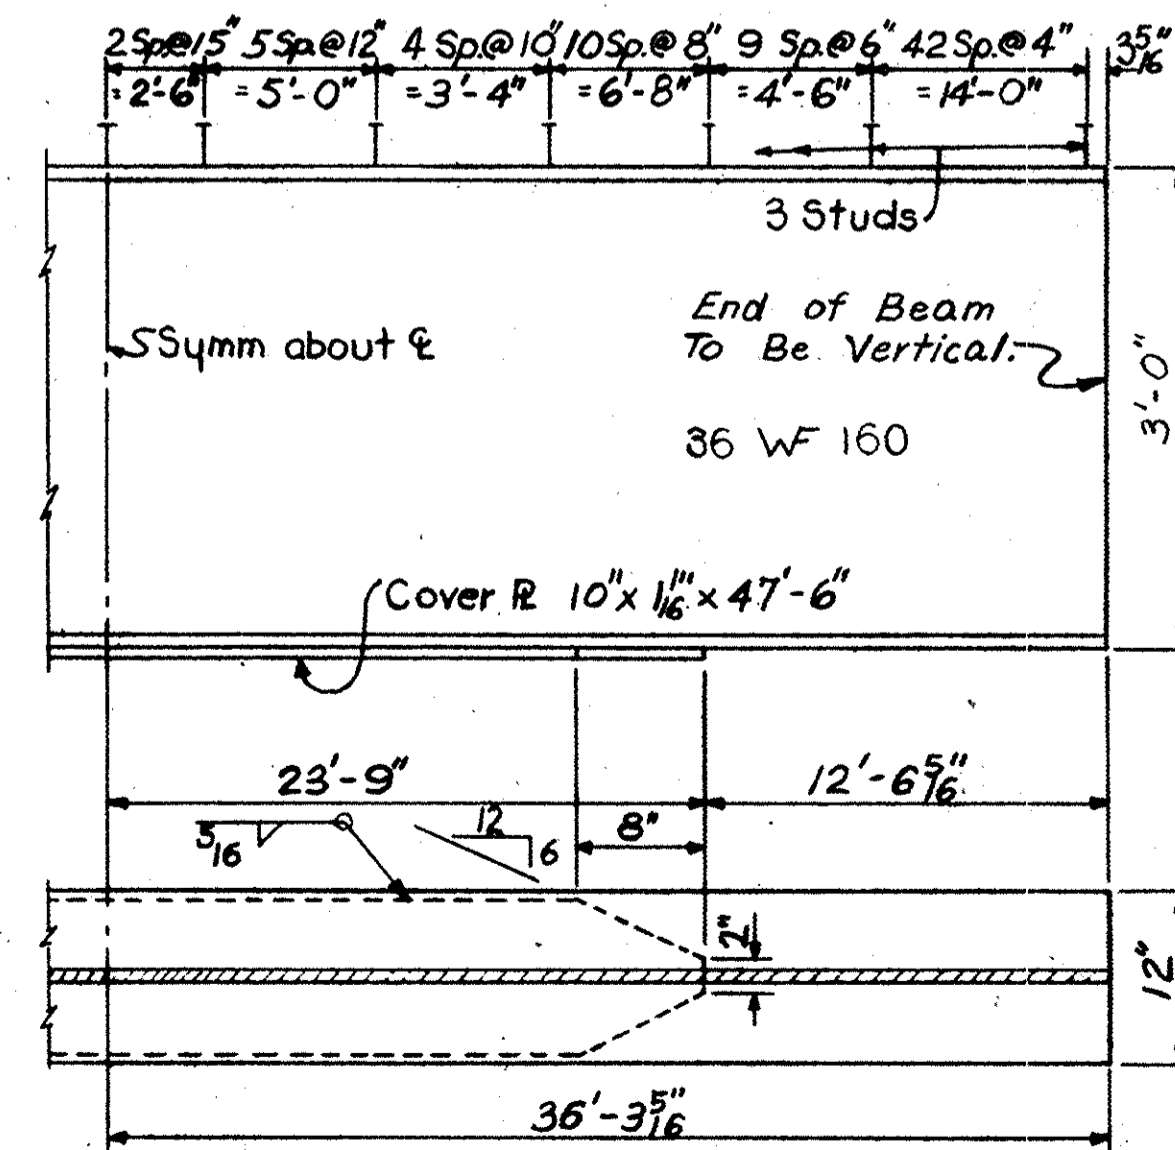 2Sp.@15" 5Sp.@12" 4 Sp.@10" 10Sp.@8" 9 Sp.@6" 42Sp.@4" 3 5/16"
=2'-6" =5'-0" =3'-4" =6'-8" =4'-6" =14'-0"
3 Studs
End of Beam
To Be Vertical.
Symm about ℄
3'-0"
36 WF 160
Cover ℙL 10" x 1 1/16" x 47'-6"
23'-9" 12'-6 5/16"
5/16 12 6 8"
2"
12"
36'-3 5/16"